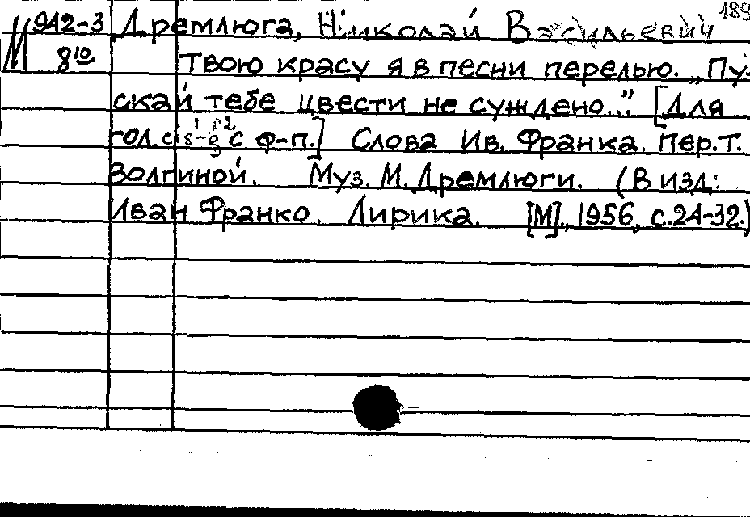 189
М 942-3 Дремлюга, Николай Васильевич
8⁽¹⁰⁾ Твою красу я в песни перелью. „Пу-
скай тебе цвести не суждено..." [Для
гол. cis¹-g² с ф-п.] Слова Ив. Франка. Пер. Т.
Волгиной. Муз. М. Дремлюги. (В изд:
Иван Франко. Лирика. [М], 1956, с. 24-32.)